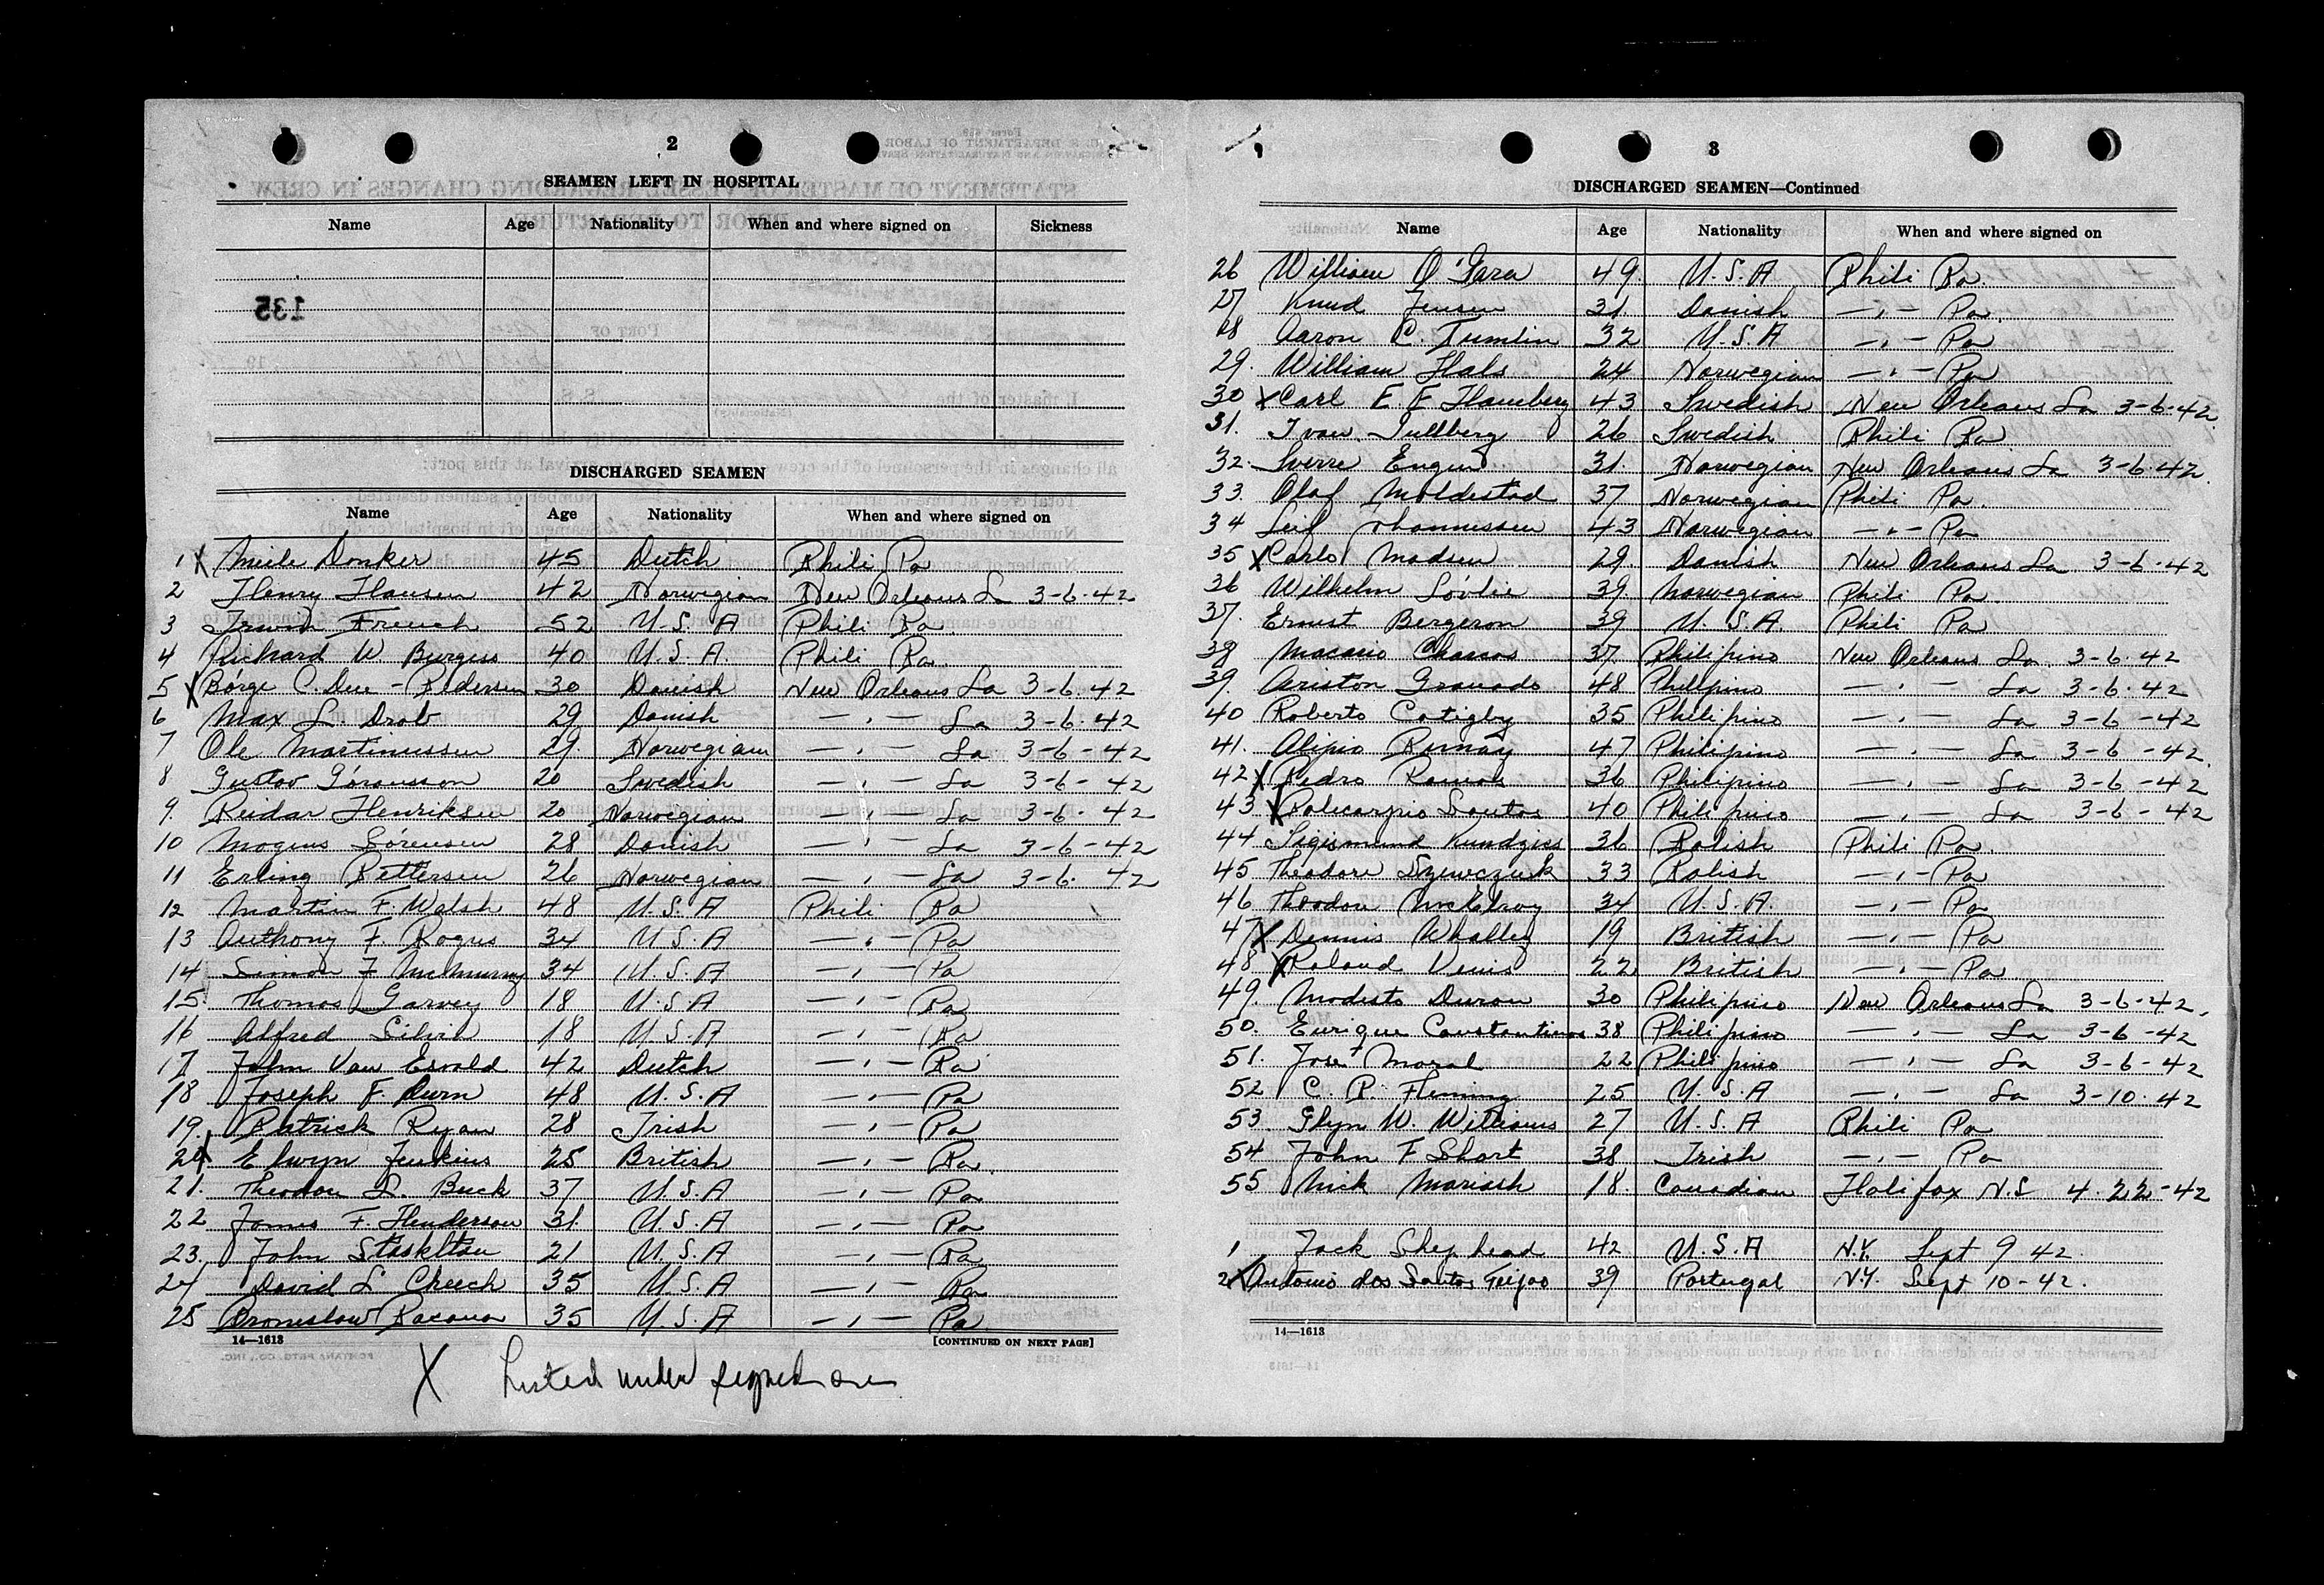 2
SEAMEN LEFT IN HOSPITAL
Name Age Nationality When and where signed on Sickness
135
DISCHARGED SEAMEN
Name Age Nationality When and where signed on
1 X Miele Donker 45 Dutch Phili Pa
2 Henry Hansen 42 Norwegian New Orleans La 3-6-42
3 French 52 U.S.A Phili Pa
4 Richard W. Burgess 40 U.S.A. Phili Pa.
5 X Börge C. Due-Pedersen 30 Danish New Orleans La 3-6.42
6 Max L. Drob 29 Danish — " — La 3-6.42
7 Ole Martinussen 29. Norwegian — " — La 3-6-42
8 Gustav Göransson 20 Swedish — " — La 3-6-42
9. Reidar Henriksen 20 Norwegian — " — La 3-6-42
10 Mogens Sörensen 28 Danish — " — La 3-6-42
11 Erling Pettersen 26 Norwegian — " — La 3-6. 42
12 Martin F. Walsh 48 U.S.A Phili Pa
13 Anthony F. Rogus 34 U.S.A — " — Pa
14 Simon J McMurray 34 U.S.A — " — Pa
15 Thomas Garvey 18 U.S.A — " — Pa
16 Alfred Silvia 18 U.S.A — " — Pa
17 John Van Esvold 42 Dutch — " — Pa
18 Joseph F. Durn 48 U.S.A — " — Pa
19. Patrick Ryan 28 Irish — " — Pa
20. X Elwyn Jenkins 25 British — " — Pa.
21. Theodore L. Buck 37 U.S.A — " — Pa
22 James F. Henderson 31. U.S.A — " — Pa
23. John 21 U.S.A — " — Pa
24 David L Cheech 35 U.S.A — " — Pa
25 Bronislaw Racana 35 U.S.A — " — Pa
14—1613 [CONTINUED ON NEXT PAGE]
X Listed under signed on
3
DISCHARGED SEAMEN—Continued
Name Age Nationality When and where signed on
26 William O'Gara 49. U.S.A Phili Pa.
27 Knud Jensen 31. Danish — " — Pa.
28 Aaron C. Tumlin 32 U.S.A — " — Pa
29. William Hals 24 Norwegian — " — Pa
30 X Carl E. E Hamberg 43 Swedish New Orleans La 3-6-42
31. Ivan Gullberg 26 Swedish Phili Pa
32. Sverre Engun 31. Norwegian New Orleans La 3-6.42
33. Olaf Moldestad 37 Norwegian Phili Pa.
34 Leif Johannessen 43 Norwegian — " — Pa
35 X Carlo Madsen 29. Danish New Orleans La 3-6-42
36 Wilhelm Lövlie 39. Norwegian Phili Pa.
37. Ernest Bergeron 39 U.S.A. Phili Pa
38 Macario Charcos 37. Philipino New Orleans La. 3-6.42
39. Ariston Granado 48 Philipino — " — La 3-6.42
40 Roberto Catigby 35 Philipino — " — La 3-6-42
41. Alipio Rumay 47 Philipino — " — La 3-6-42
42 X Pedro Ramos 36 Philipino — " — La 3-6-42
43 X Policarpio Santos 40 Philipino — " — La 3-6-42
44 Sigismund Kundgies 36 Polish Phili Pa
45 Theodore Szewczuk 33 Polish — " — Pa
46. Theodore McElroy 34 U.S.A. — " — Pa
47 X Dennis Whalley 19 British — " — Pa
48 X Roland Venis 22 British — " — Pa
49. Modesto Duran 30 Philipino New Orleans La 3-6-42.
50. Enrique Constantino 38 Philipino — " — La 3-6-42
51. Jose Moral 22 Philipino — " — La 3-6-42
52 C. P. Fleming 25 U.S.A — " — La 3-10.42
53. Glyn W. Williams 27 U.S.A Phili Pa
54 John F Short 38 Irish — " — Pa
55 Nick Mariash 18. Canadian Halifax N.S 4.22-42
1 Jack Shephead 42 U.S.A N.Y. Sept 9 42.
2 X Antonio dos Santos Feijoo 39 Portugal N.Y. Sept 10-42.
14—1613